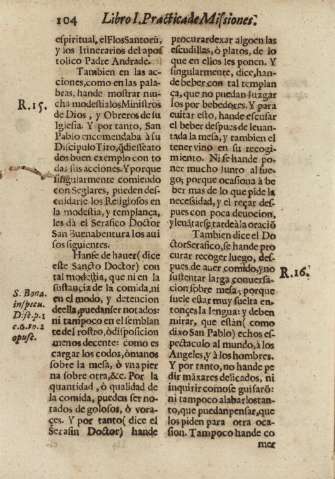 104 Libro I. Practica de Missiones.
espiritual, el Flos Santorũ,
y los Itinerarios del apos
tolico Padre Andrade.
Tambien en las ac-
ciones, como en las pala-
bras, hande mostrar mu-
cha modestia los Ministros
de Dios, y Obreros de su
Iglesia. Y por tanto, San
Pablo encomendaba à su
Discipulo Tito,
dos buen exemplo con to
das sus acciones. Y porque
singularmente comiendo
con Seglares, pueden des-
cuidarse los Religiosos en
la modestia, y templança,
les dà el Serafico Doctor
San Buenabentura los aui
sos siguientes.
Hanse de hauer (dice
este Sancto Doctor) con
tal modestia, que ni en la
sustancia de la comida, ni
en el modo, y detencion
de ella, puedan ser notados:
ni tampoco en el semblan
te del rostro, ò disposicion
menos decente: como es
cargar los codos, ò manos
sobre la mesa, ò vna pier
na sobre otra, &c. Por la
quantidad, ò qualidad de
la comida, pueden ser no-
tados de golosos, ò vora-
ces. Y por tanto (dice el
Serafin Doctor) hande
R. 15.
S. Bona.
in specu.
Disc. p. 1
opusc.
procurar dexar algo en las
escudillas, ò platos, de lo
que en ellos les ponen. Y
singularmente, dice, han-
de beber con tal templan
ça, que no puedan juzgar
los por bebedores. Y para
euitar esto, hande escusar
el beber despues de leuan-
tada la mesa, y tambien el
tener vino en su recogi-
miento. Ni se hande po-
ner mucho junto al fue-
go, porque ocasiona à be
ber mas de lo que pide la
necesidad, y el reçar des-
pues con poca deuocion,
y leuãtarse tarde à la oraciõ
Tambien dice el Do
ctor Serafico, se hande pro
curar recoger luego, des-
pues de auer comido, y no
sustentar larga conuersa-
cion sobre mesa; porque
suele estar muy suelta en-
tonces la lengua: y deben
mirar, que están (como
dixo San Pablo) echos es-
pectaculo al mundo, à los
Angeles, y à los hombres.
Y por tanto, no hande pe
dir mãxares delicados, ni
inquirir como se guisarõ:
ni tampoco alabarlos tan-
to, que puedan pensar, que
los piden para otra oca-
sion. Tampoco hande co
mer
R. 16.